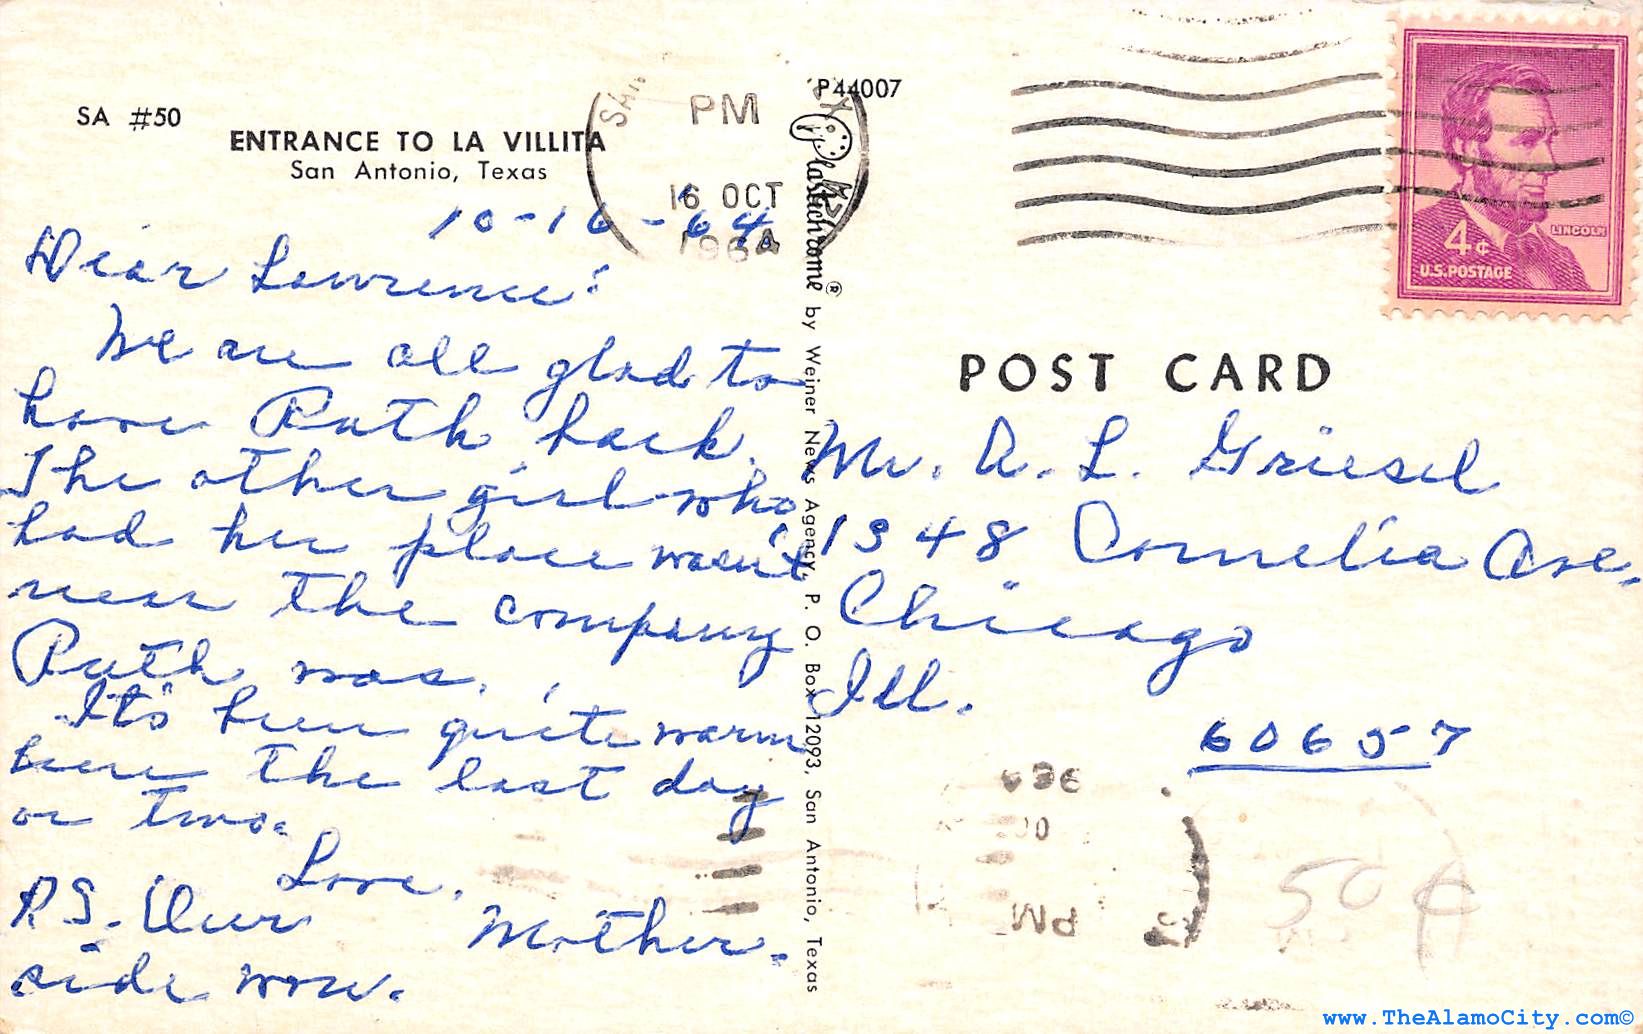 SA #50
ENTRANCE TO LA VILLITA
San Antonio, Texas
P44007
PM
16 OCT
1964
10-16-64
Dear Lawrence:
We are all glad to
have Ruth back.
The other girl who
had her place wasn't
near the company
Ruth was.
It's been quite warm
here the last day
or two.
Love,
Mother.
P.S. Our
side won.
Plastichrome® by Weiner News Agency, P. O. Box 12093, San Antonio, Texas
4¢
LINCOLN
U.S. POSTAGE
POST CARD
Mr. A. L. Griesel
1348 Cornelia Ave.
Chicago
Ill.
60657
PM
50¢
www.TheAlamoCity.com©